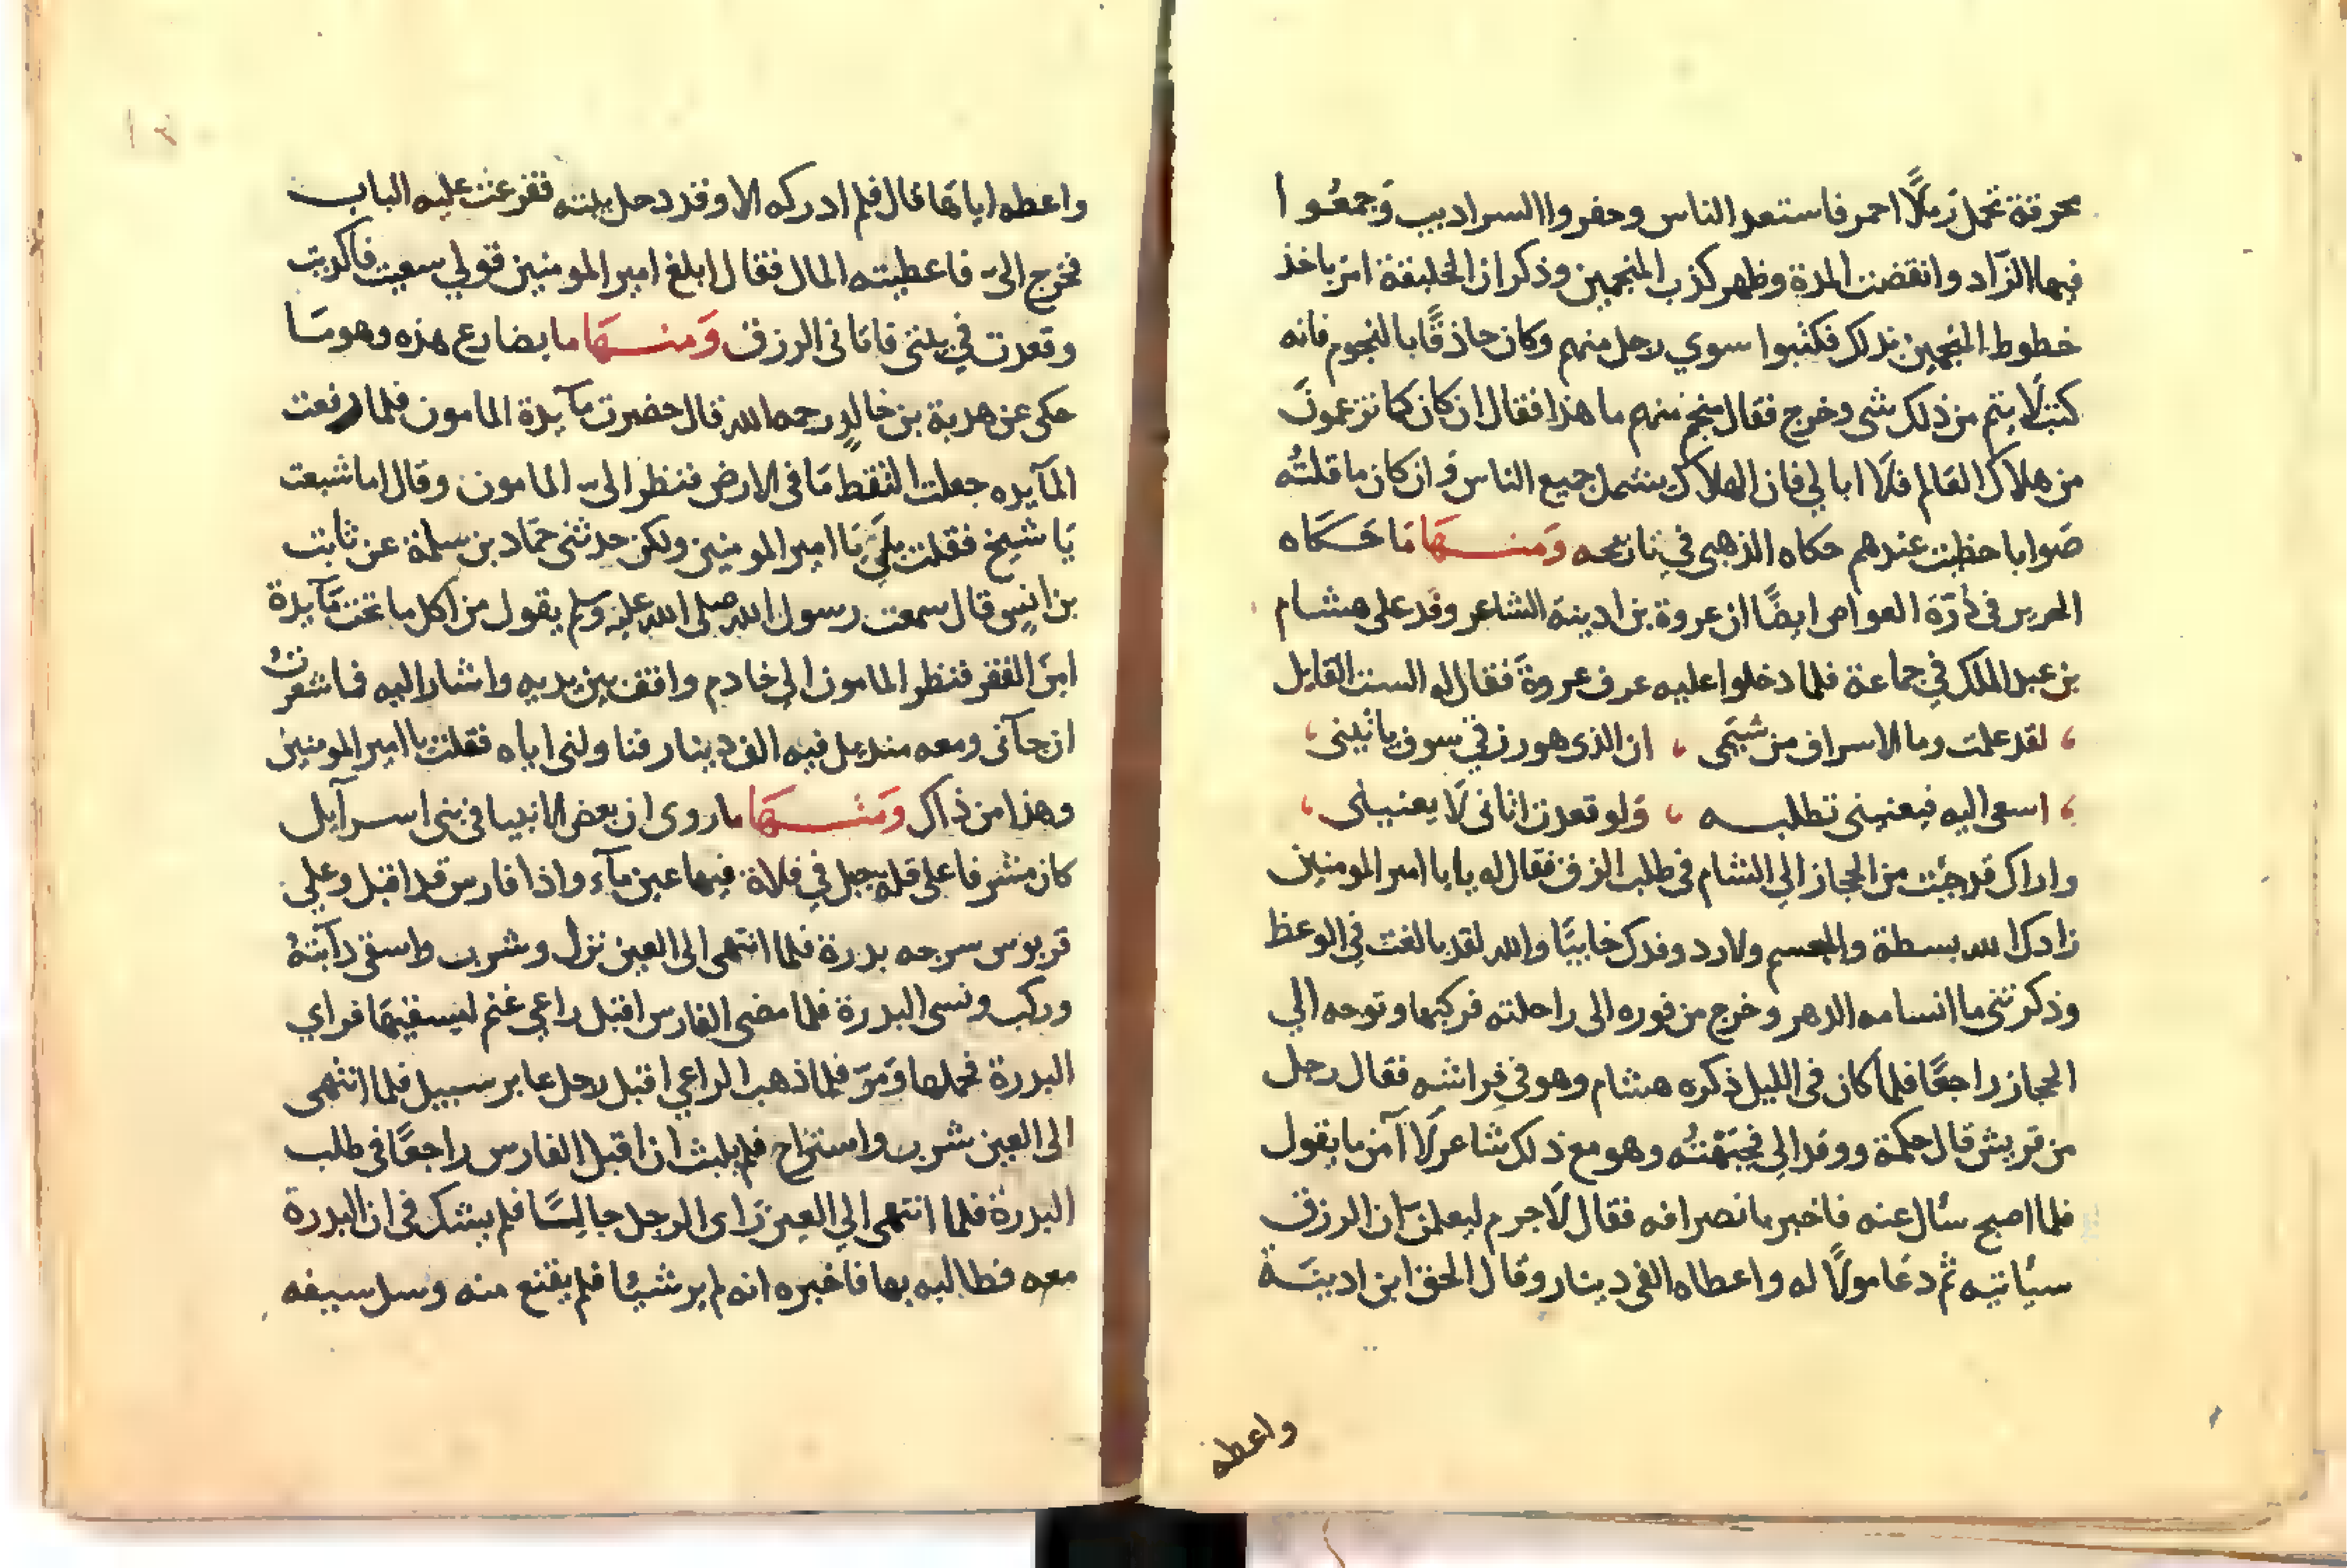 محرقة تحمل رملًا احمر فاستعد الناس وحفروا السراديب وَجمعُوا
فيها الزّاد وانقضت المدة وظهر كذب المنجمين وذكر ان الخليفة امر باخذ
خطوط المنجمين بذلك فكتبوا سوي رجل منهم وكان حاذقًا بالنجوم فانه
كتب لَا يتم من ذلك شى وخرج فقال منجم منهم ما هذا فقال ان كان كما تزعمونَ
من هلاك العَالم فلَا ابالي فان الهلاك يشمل جميع الناس وَان كان ما قلتُه
صَوابا حظيت عندهم حكاه الذهبى في تاريخه وَمنهَا مَا حَكَاه
الحريرى فى دُرّة الغواص ايضًا ان عروة بن اذينة الشاعر وفَد على هشام
بن عبد الملك فِي جماعة فلما دخلوا عليه عرف عروةَ فقال له الست القايل
لقد علمت وما الاسراف من شيَمى ، ان الذى هو رزقي سوف ياتينى
اسعى اليه فيعنينى تطلبه ، وَلو قعدت اتانى لَا يعنينى
واراك قد جئت من الحجاز الي الشام فى طلب الرزق فقال له يا امير المومنين
زادك الله بسطة والجسم ولا رد وفدك خايبًا والله لقد بالغت فِي الوعظ
وذكرتنى ما انسامه الدهر وخرج من فوره الى راحلته فركبها وتوجه الي
الحجاز راجعًا فلما كان فى الليل ذكره هشام وهو في فِراشه فقال رجل
من قريش قال حكمة ووفد الِي فجَبَهْتُه وهو مع ذلك شاعر لَا آمن ما يقول
فلما اصبح سأل عنه فاخبر بانصرافه فقال لَا جرم ليعلمنّ ان الرزق
سيُاتيه ثم دعَا مولًا له واعطاه الفى دينار وقال الحق ابن اذينَة
واعطه
واعطه اياهَا قال فلم ادركه الا وقد دخل بيته فقرعت عليه الباب
فخرج الىّ فاعطيته المال فقال ابلغ امير المومنين قولي سعيت فاكديت
وقعدت في بيتى فاتانى الرزق وَمنهَا ما يضارع هذه وهو مَا
حكى عن هدبة بن خالدٍ رحمه الله قال حضرت مآيدة المامون فلما رفعت
المآيده جعلت التقط مَا فى الارض فنظر الىّ المامون وقال اما شبعت
يَا شيخ فقلت بلَي يَا امير المومنين ولكن حدثنى حمّاد بن سلمة عن ثابت
بن انيس قال سمعت رسول الله صلى الله عليه وسلم يقول من اكل ما تحت مَآيدة
امِنَ الفقر فنظر المامون الى خادم واقف بين يديه واشار اليه فما شعرتُ
ان جآنى ومعه منديل فيه الف دينار فناولنى اياه فقلت يا امير المومنين
وهذا من ذاك وَمنهَا ما روى ان بعض الانبيا فى بنى اسرآيل
كان مشرفا على قلة جبل فِي فلاة فيها عين مآء واذا فارس قد اقبل وعلي
قربوس سرجه بدرة فلما انتهى الى العين نزل وشرب واسقى دآبتهُ
وركب ونسى البدرة فلما مضى الفارس اقبل راعي غنم ليسقيهَا فراي
البدرة فحملها وَمرّ فلما ذهب الراعي اقبل رجل عابر سبيل فلما انتهى
الى العين شرب واستراح فلم يلبث ان اقبل الفارس راجعًا فى طلب
البدرة فلما انتهى الي العين رَاى الرجل جالِسًا فلم يشك فى ان البدرة
معه فطالبه بها فاخبره انه لم ير شيًا فلم يقتنع منه وسل سيفه